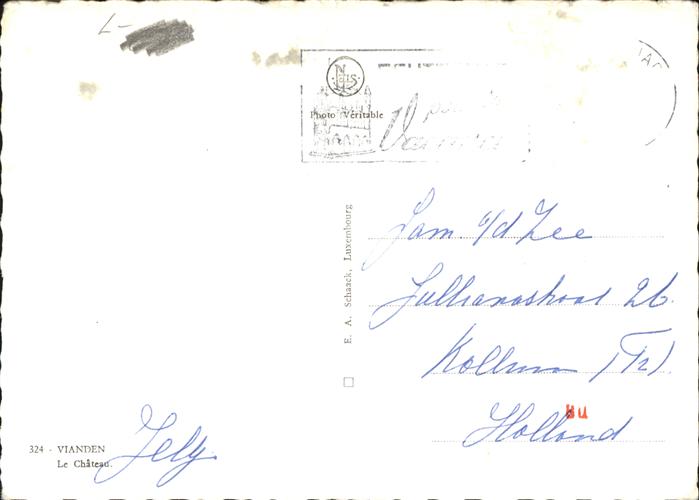 L-
Photo Véritable
E. A. Schaack, Luxembourg
Fam v/d Zee
Jullianastraat 26.
Kollum (Frl).
Holland
BU
324 - VIANDEN
Le Château.
Jelly